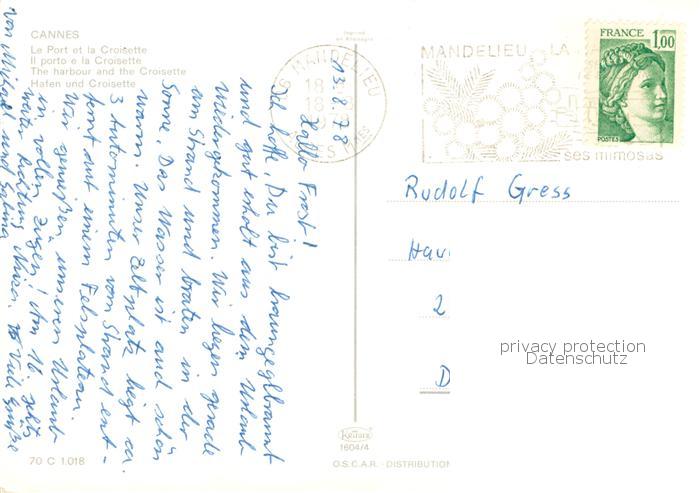 CANNES
Le Port et la Croisette
Il porto e la Croisette
The harbour and the Croisette
Hafen und Croisette
Imprimé
en Allemagne
06 MANDELIEU
18
1978
MANDELIEU LA
ses mimosas
FRANCE
1,00
POSTES
13.8.78
Hallo Frost!
Ich hoffe, Du bist braungebrannt
und gut erholt aus dem Urlaub
wiedergekommen. Wir liegen gerade
am Strand und braten in der
Sonne. Das Wasser ist auch schön
warm. Unser Zeltplatz liegt ca.
3 Autominuten vom Strand ent-
fernt auf einem Felsplateau.
Wir genießen unseren Urlaub
in vollen Zügen! Am 16. geht's
weiter Richtung Nizza. Viele Grüße
von Michael und Sabine
Rudolf Gress
Hau
2
D
privacy protection
Datenschutz
Krüger
1604/4
70 C 1.018
O.S.C.A.R. - DISTRIBUTION